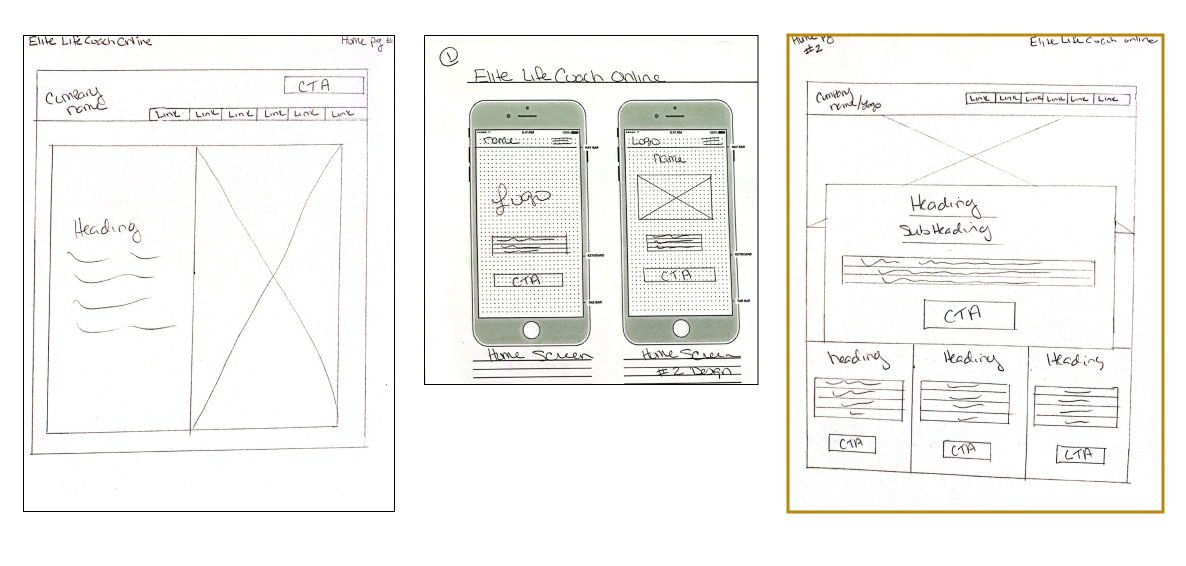 Elite Life Coach Online
Home pg #
CTA
Company
name
Link Link Link Link Link Link
Heading
1
Elite Life Coach Online
9:41 AM 100%
name
NAV BAR
Logo
KEYBOARD
CTA
TAB BAR
Home Screen
9:41 AM 100%
Logo
NAV BAR
name
KEYBOARD
CTA
TAB BAR
Home Screen
#2 Design
Home pg
#2
Elite Life Coach online
Company
name/logo
Link Link Link Link Link Link
Heading
SubHeading
CTA
heading
Heading
Heading
CTA
CTA
CTA